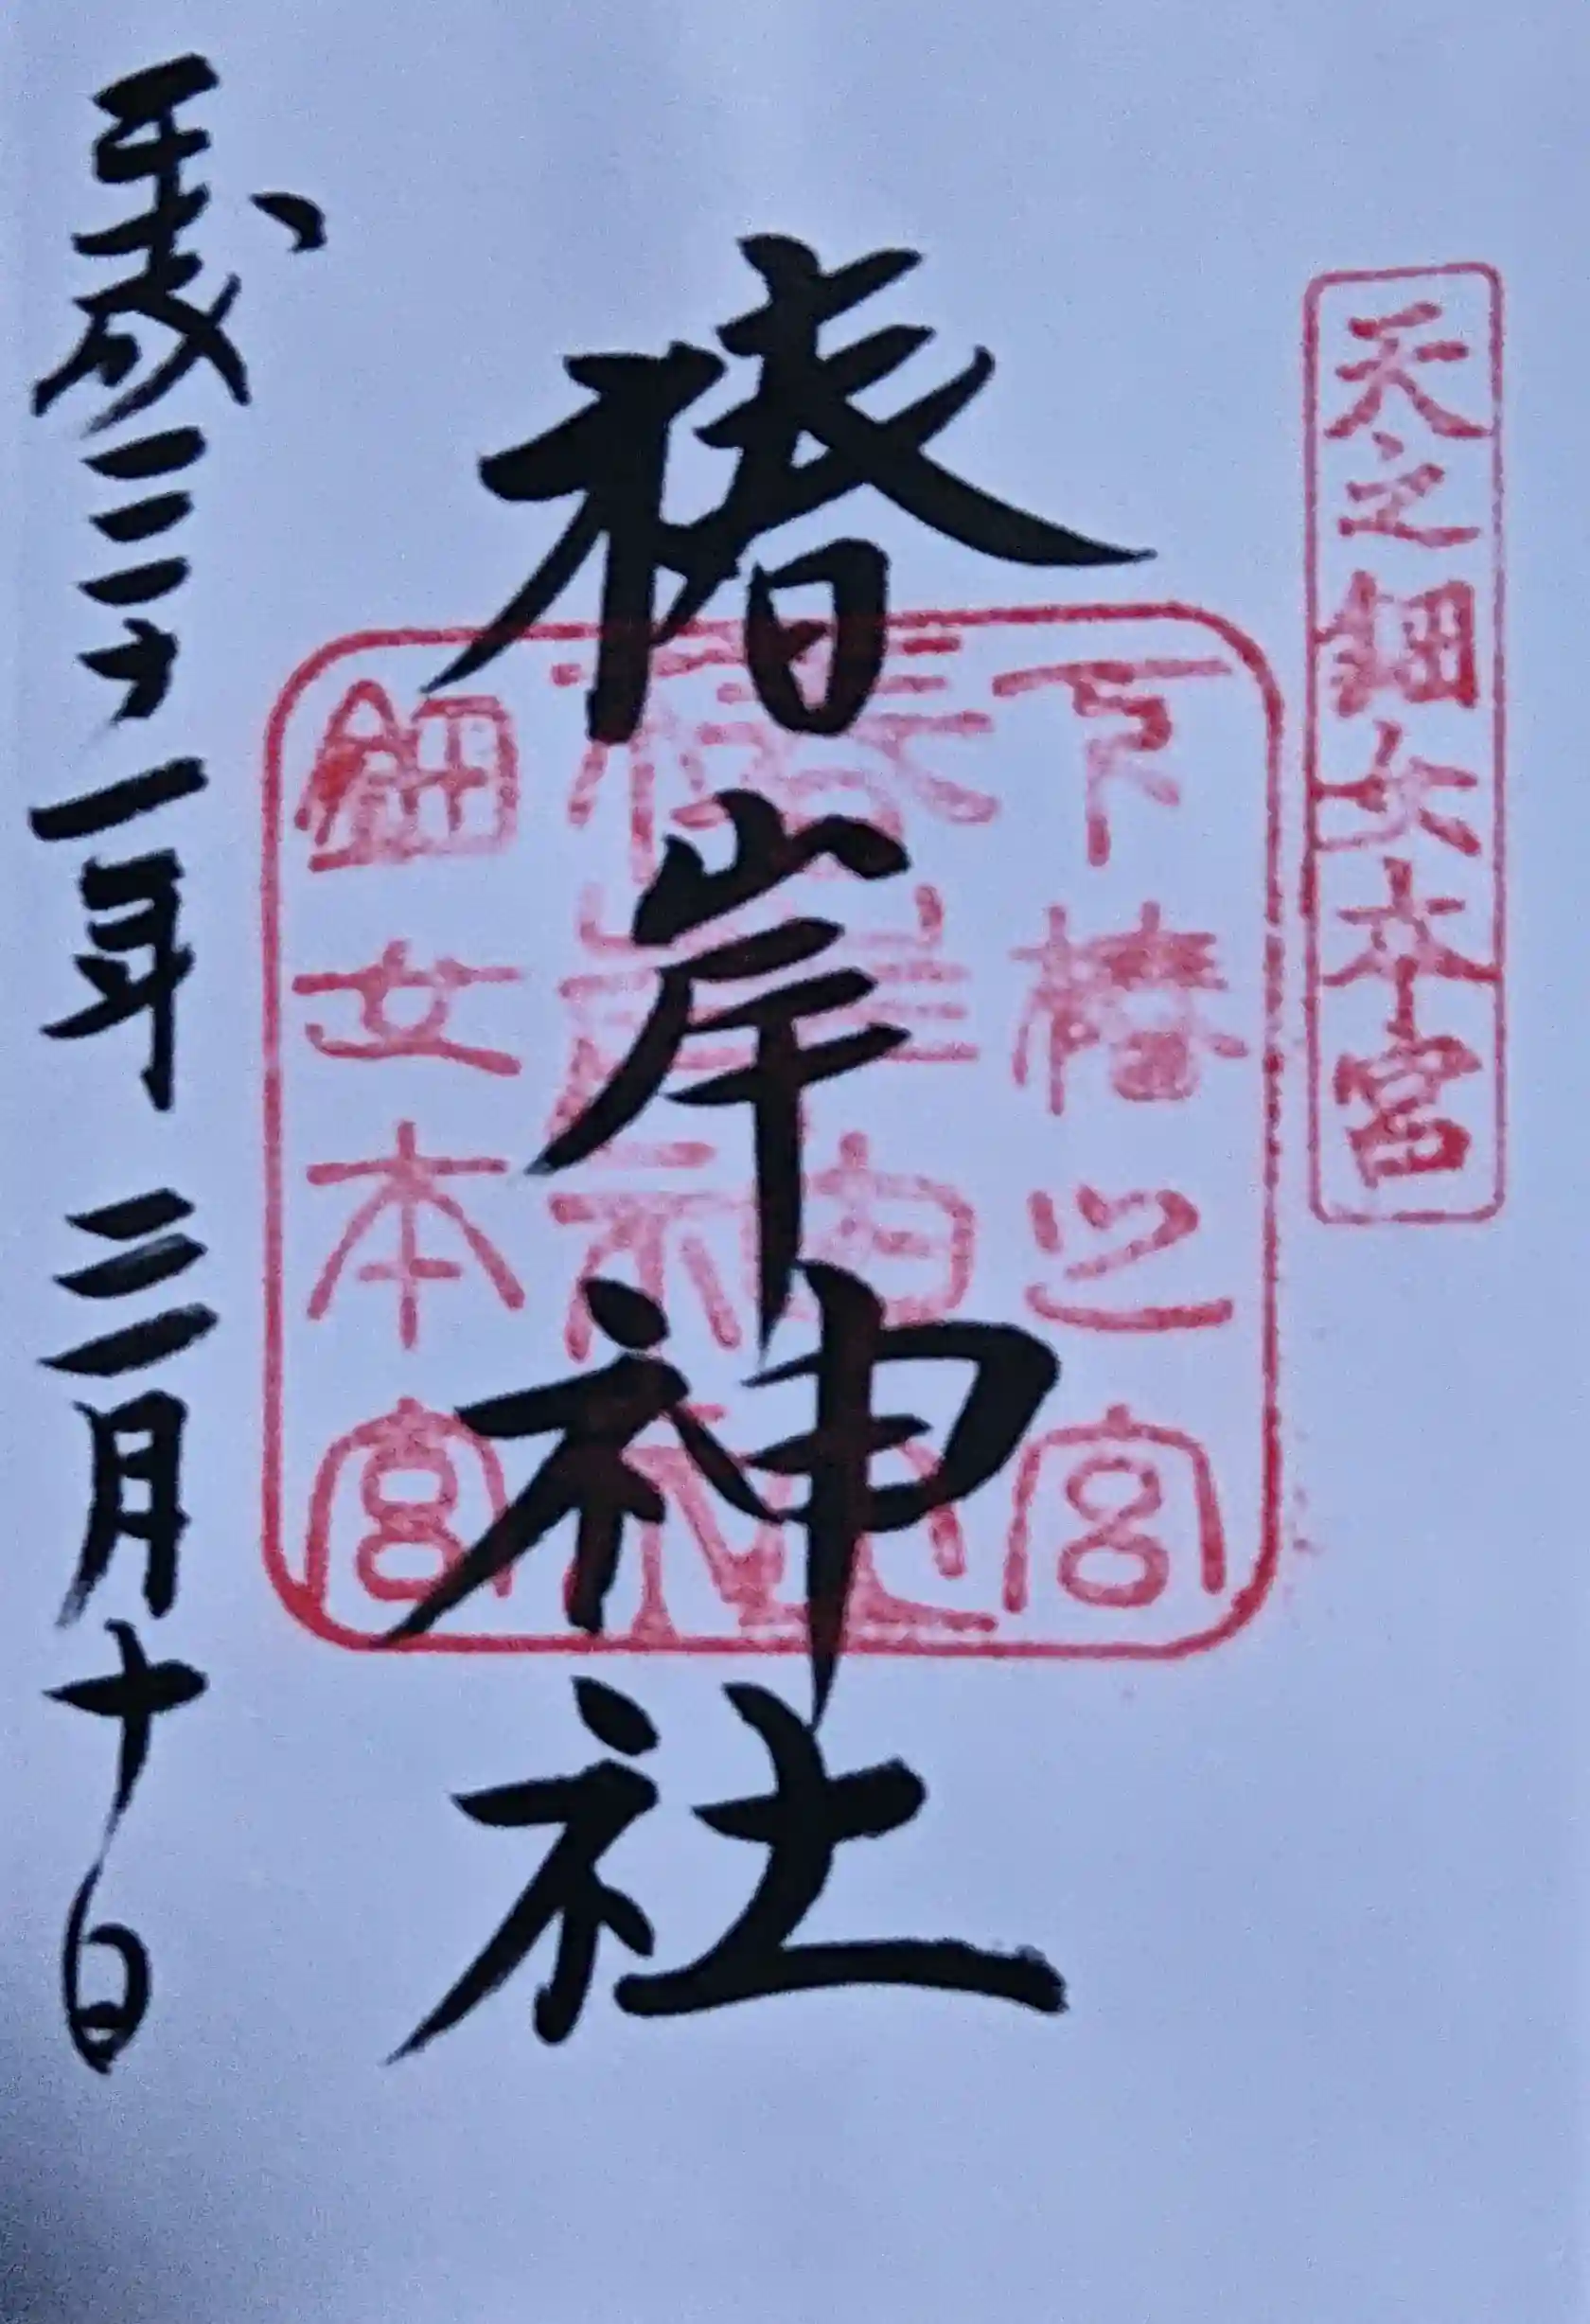 天之鈿女本宮
椿岸神社
下椿之宮
椿岸神社
鈿女本宮
平成三十一年三月十日